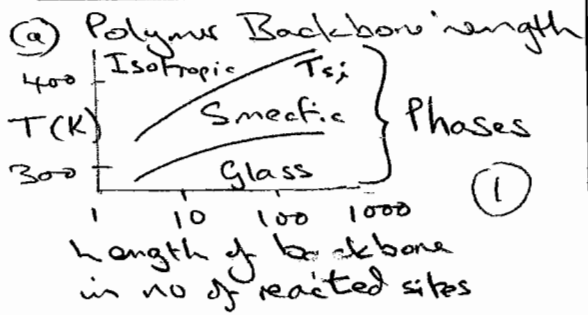 (a) Polymer Backbone length
400 Isotropic Tsi
T(K) Smectic Phases
300 Glass
1
1 10 100 1000
Length of backbone
in no of reacted sites